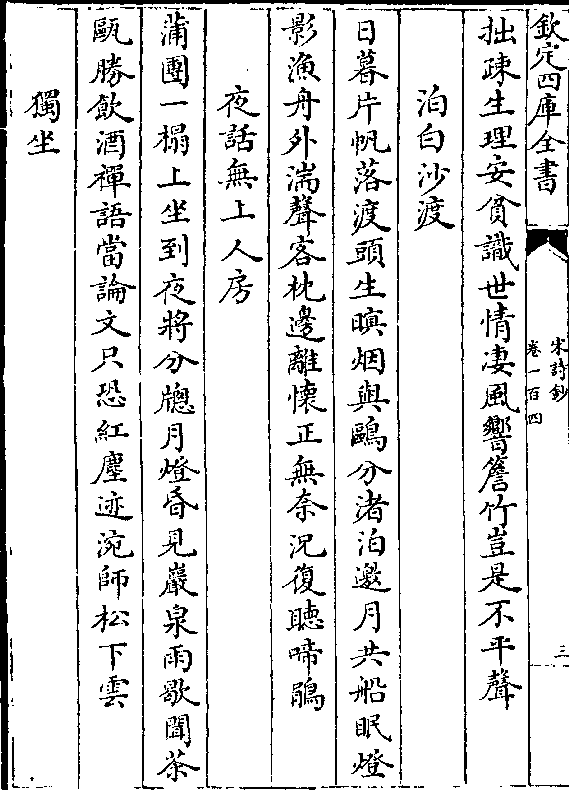 欽定四庫全書
宋詩鈔
卷一百四
三
拙疎生理安貧識世情凄風響簷竹豈是不平聲
泊白沙渡
日暮片帆落渡頭生暝烟與鷗分渚泊邀月共船眠燈
影漁舟外湍聲客枕邊離懷正無柰況復聽啼鵑
夜話無上人房
蒲團一榻上坐到夜將分牕月燈昏見巖泉雨歇聞茶
甌勝飲酒禪語當論文只恐紅塵迹涴師松下雲
獨坐